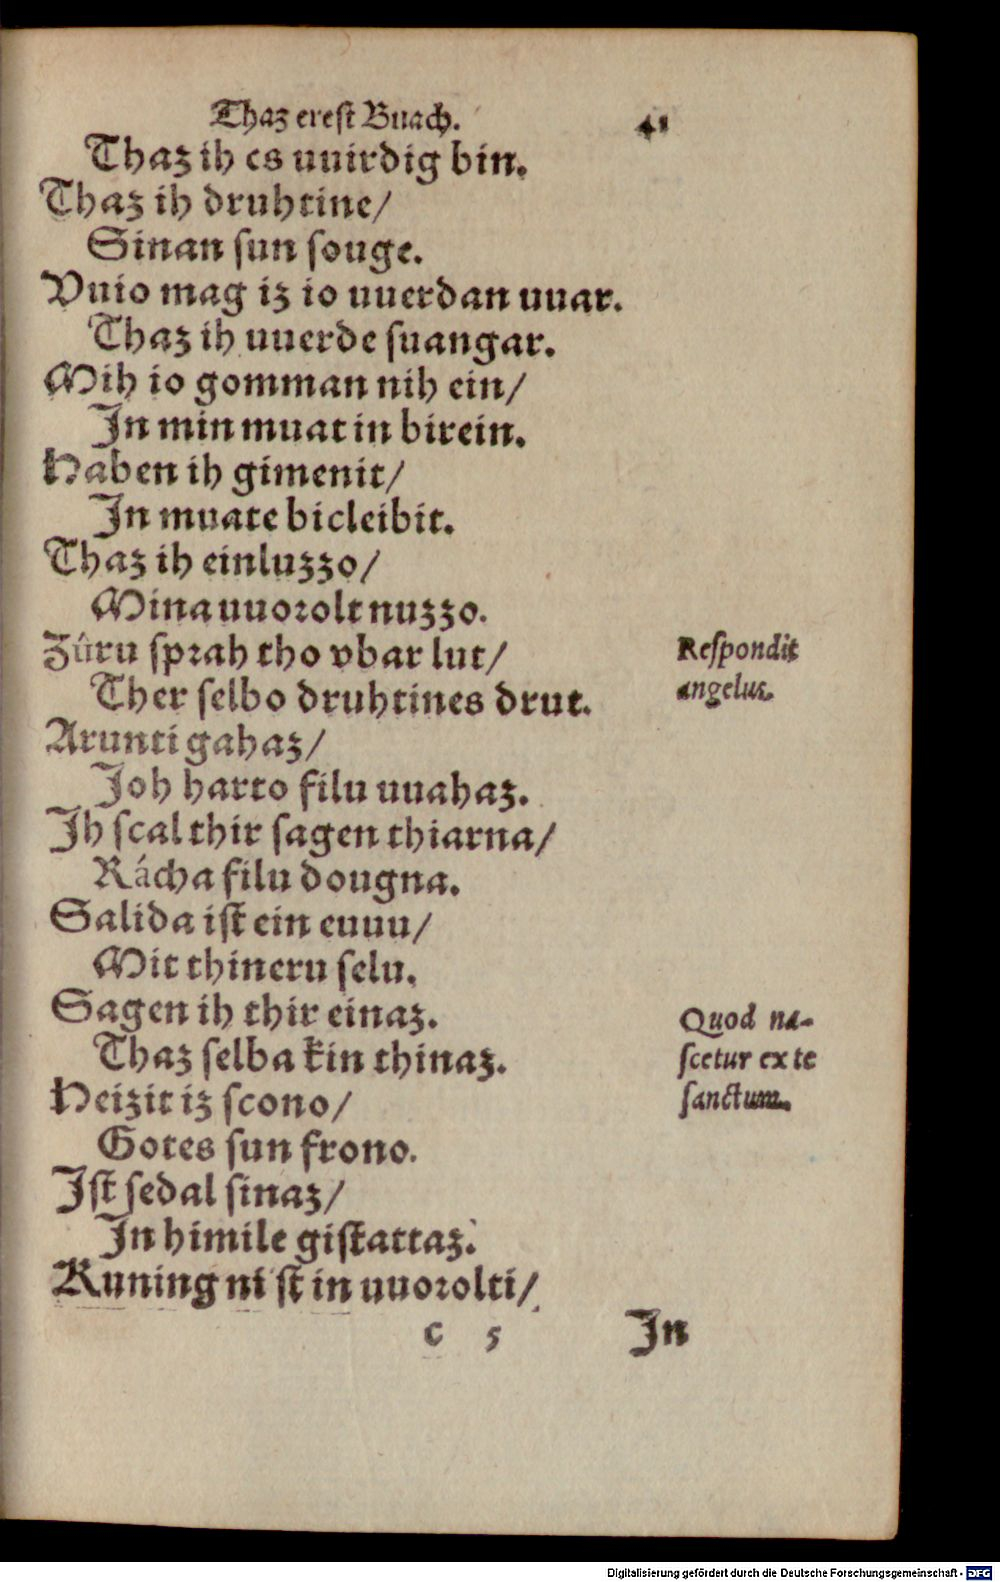 Thaz erest Buach. 41
Thaz ih es uuirdig bin.
Thaz ih druhtine/
Sinan sun souge.
Vuio mag iz io uuerdan uuar.
Thaz ih uuerde suangar.
Mih io gomman nih ein/
In min muat in birein.
Haben ih gimenit/
In muate bicleibit.
Thaz ih einluzzo/
Mina uuorolt nuzzo.
Zûru sprah tho vbar lut/
Ther selbo druhtines drut.
Arunti gahaz/
Joh harto filu uuahaz.
Ih scal thir sagen thiarna/
Rácha filu dougna.
Salida ist ein euuu/
Mit thineru selu.
Sagen ih thir einaz.
Thaz selba kin thinaz.
Heizit iz scono/
Gotes sun frono.
Ist sedal sinaz/
In himile gistattaz.
Kuning ni st in uuorolti/
C 5 In
Respondit
angelus.
Quod na-
scetur ex te
sanctum.
Digitalisierung gefördert durch die Deutsche Forschungsgemeinschaft - DFG